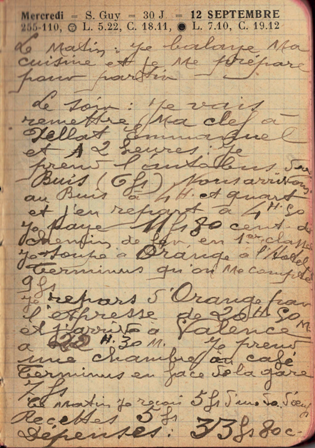 Mercredi — S. Guy — 30 J. — 12 SEPTEMBRE
255-110, L. 5.22, C. 18.11, L. 7.10, C. 19.12
Le Matin: Je balaye Ma
cuisine et je Me prépare
pour partir
Le soir: Je vais
remettre Ma clef à
Jellat Emmanuel
et A 2 heures, Je
prend l'autobus pour
Buis (6 fs) Nous arrivons
au Buis à 4 H. et quart
et j'en repart à 4 H. 50
je paye 11 fs 80 cent. de
chemin de fer, en 1er classe
je soupe à Orange à l'hôtel
Terminus qu'on Me compte
9 fs
Je repars d'Orange par
l'express de 20 H 50 M
et j'arrive à Valence
à H. 30 M. Je prend
une chambre au café
Terminus en face de la gare
7 fs
Ce Matin je reçoi 5 fs
Recettes 5 fs
Dépenses: 33 fs 80 c.